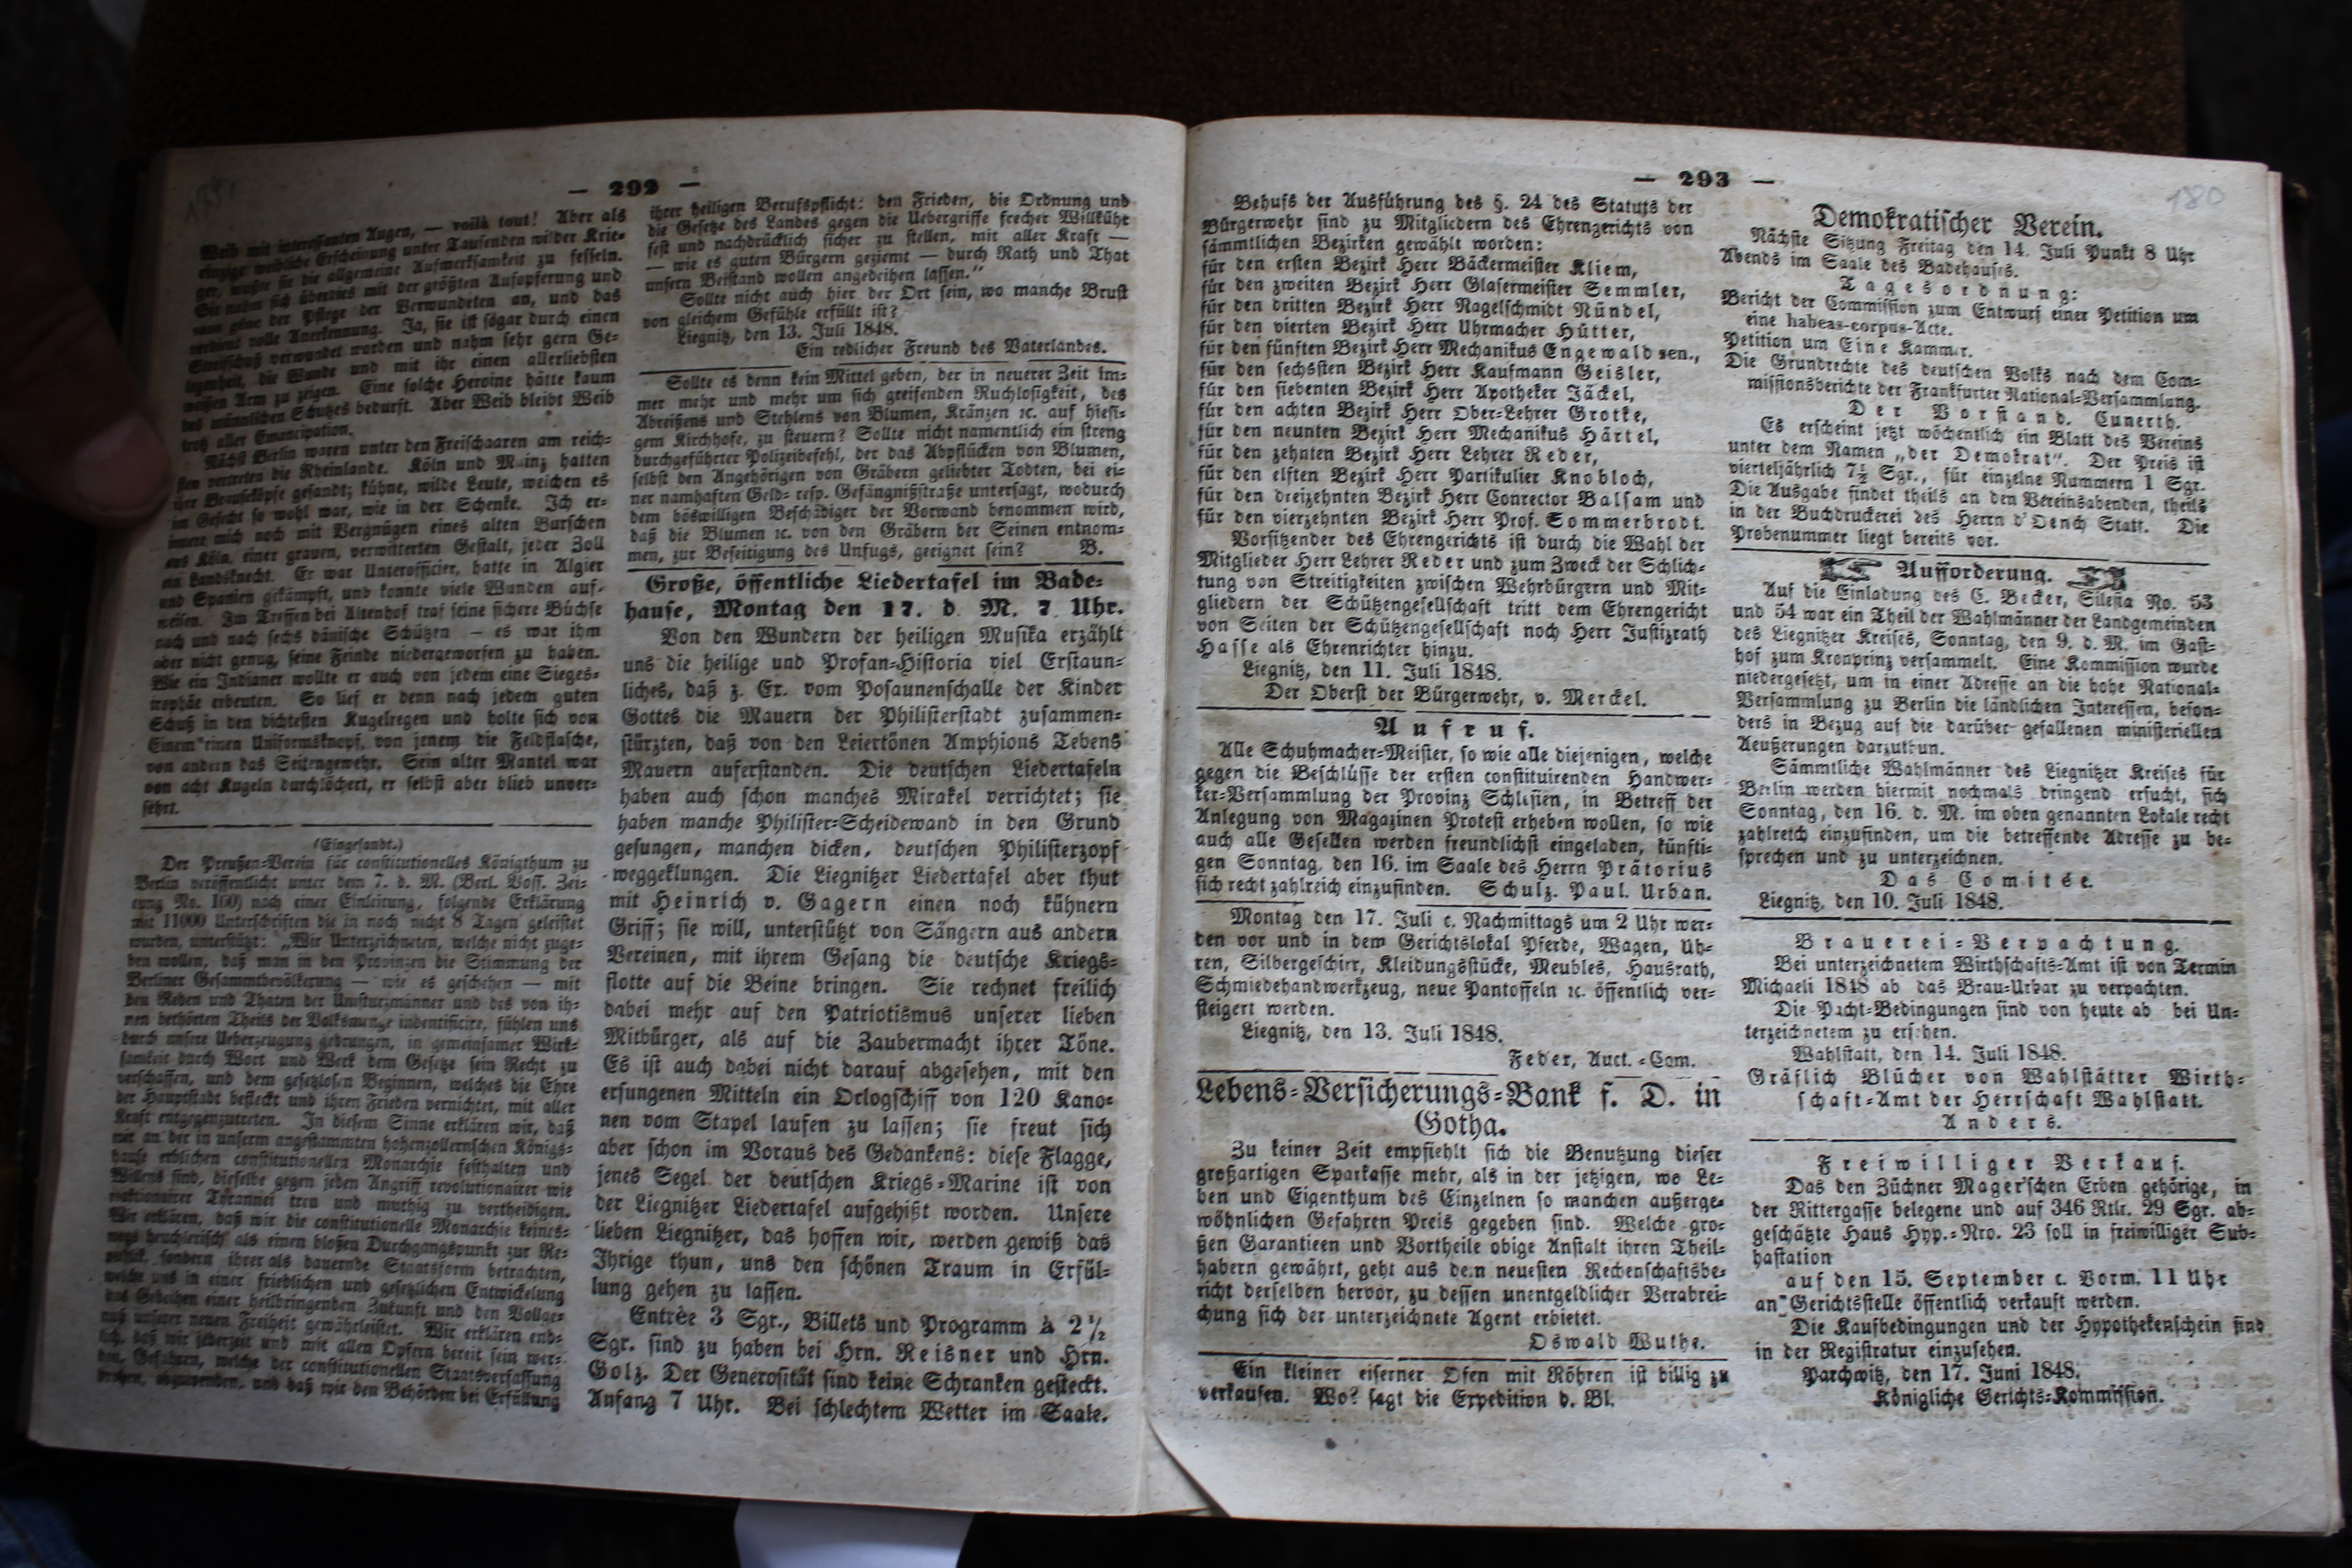 — 292 —
Weib mit interessanten Augen, — voilà tout! Aber als
einzige weibliche Erscheinung unter Tausenden wilder Krie-
ger, wußte sie die allgemeine Aufmerksamkeit zu fesseln.
Sie nahm sich überdies mit der größten Aufopferung und
ganz gene der Pflege der Verwundeten an, und das
verdient volle Anerkennung. Ja, sie ist sogar durch einen
Streifschuß verwundet worden und nahm sehr gern Ge-
legenheit, die Wunde und mit ihr einen allerliebsten
weißen Arm zu zeigen. Eine solche Heroine hätte kaum
des männlichen Schutzes bedurft. Aber Weib bleibt Weib
trotz aller Emancipation.
Nächst Berlin waren unter den Freischaaren am reich-
sten vertreten die Rheinlande. Köln und Mainz hatten
ihre Brauseköpfe gesandt; kühne, wilde Leute, welchen es
im Gefecht so wohl war, wie in der Schenke. Ich er-
innere mich noch mit Vergnügen eines alten Burschen
aus Köln, einer grauen, verwitterten Gestalt, jeder Zoll
ein Landsknecht. Er war Unterofficier, hatte in Algier
und Spanien gekämpft, und konnte viele Wunden auf-
weisen. Im Treffen bei Altenhof traf seine sichere Büchse
nach und nach sechs dänische Schützen — es war ihm
aber nicht genug, seine Feinde niedergeworfen zu haben.
Wie ein Indianer wollte er auch von jedem eine Sieges-
trophäe erbeuten. So lief er denn nach jedem guten
Schuß in den dichtesten Kugelregen und holte sich von
Einem einen Uniformsknopf, von jenem die Feldflasche,
von andern das Seitengewehr. Sein alter Mantel war
von acht Kugeln durchlöchert, er selbst aber blieb unver-
sehrt.
(Eingesandt.)
Der Preußen-Verein für constitutionelles Königthum zu
Berlin veröffentlicht unter dem 7. d. M. (Berl. Voss. Zei-
tung No. 160) nach einer Einleitung, folgende Erklärung
mit 11000 Unterschriften die in noch nicht 8 Tagen geleistet
wurden, unterstützt: „Wir Unterzeichneten, welche nicht zuge-
ben wollen, daß man in den Provinzen die Stimmung der
Berliner Gesammtbevölkerung — wie es geschehen — mit
den Reden und Thaten der Umsturzmänner und des von ih-
nen bethörten Theils der Volksmenge indentificire, fühlen uns
durch unsere Ueberzeugung gedrungen, in gemeinsamer Wirk-
samkeit durch Wort und Werk dem Gesetze sein Recht zu
verschaffen, und dem gesetzlosen Beginnen, welches die Ehre
der Hauptstadt befleckt und ihren Frieden vernichtet, mit aller
Kraft entgegenzutreten. In diesem Sinne erklären wir, daß
wir an der in unserm angestammten hohenzollernschen Königs-
hause erblichen constitutionellen Monarchie festhalten und
Willens sind, dieselbe gegen jeden Angriff revolutionairer wie
reaktionairer Tyrannei treu und muthig zu vertheidigen.
Wir erklären, daß wir die constitutionelle Monarchie keines-
wegs heuchlerisch als einen bloßen Durchgangspunkt zur Re-
publik, sondern ihrer als dauernde Staatsform betrachten,
welche uns in einer friedlichen und gesetzlichen Entwickelung
das Gedeihen einer heilbringenden Zukunft und den Vollge-
nuß unserer neuen Freiheit gewährleistet. Wir erklären end-
lich, daß wir jederzeit und mit allen Opfern bereit sein wer-
den, Gefahren, welche der constitutionellen Staatsverfassung
drohen, abzuwenden, und daß wir den Behörden bei Erfüllung
ihrer heiligen Berufspflicht: den Frieden, die Ordnung und
die Gesetze des Landes gegen die Uebergriffe frecher Willkühr
fest und nachdrücklich sicher zu stellen, mit aller Kraft —
— wie es guten Bürgern geziemt — durch Rath und That
unsern Beistand wollen angedeihen lassen.“
Sollte nicht auch hier der Ort sein, wo manche Brust
von gleichem Gefühle erfüllt ist?
Liegnitz, den 13. Juli 1848.
Ein redlicher Freund des Vaterlandes.
Sollte es denn kein Mittel geben, der in neuerer Zeit im-
mer mehr und mehr um sich greifenden Ruchlosigkeit, des
Abreißens und Stehlens von Blumen, Kränzen ꝛc. auf hiesi-
gem Kirchhofe, zu steuern? Sollte nicht namentlich ein streng
durchgeführter Polizeibefehl, der das Abpflücken von Blumen,
selbst den Angehörigen von Gräbern geliebter Todten, bei ei-
ner namhaften Geld- resp. Gefängnißstraße untersagt, wodurch
dem böswilligen Beschädiger der Vorwand benommen wird,
daß die Blumen ꝛc. von den Gräbern der Seinen entnom-
men, zur Beseitigung des Unfugs, geeignet sein? B.
Große, öffentliche Liedertafel im Bade-
hause, Montag den 17. d. M. 7 Uhr.
Von den Wundern der heiligen Musika erzählt
uns die heilige und Profan-Historia viel Erstaun-
liches, daß z. Ex. vom Posaunenschalle der Kinder
Gottes die Mauern der Philisterstadt zusammen-
stürzten, daß von den Leiertönen Amphions Tebens
Mauern auferstanden. Die deutschen Liedertafeln
haben auch schon manches Mirakel verrichtet; sie
haben manche Philister-Scheidewand in den Grund
gesungen, manchen dicken, deutschen Philisterzopf
weggeklungen. Die Liegnitzer Liedertafel aber thut
mit Heinrich v. Gagern einen noch kühnern
Griff; sie will, unterstützt von Sängern aus andern
Vereinen, mit ihrem Gesang die deutsche Kriegs-
flotte auf die Beine bringen. Sie rechnet freilich
dabei mehr auf den Patriotismus unserer lieben
Mitbürger, als auf die Zaubermacht ihrer Töne.
Es ist auch dabei nicht darauf abgesehen, mit den
ersungenen Mitteln ein Orlogschiff von 120 Kano-
nen vom Stapel laufen zu lassen; sie freut sich
aber schon im Voraus des Gedankens: diese Flagge,
jenes Segel der deutschen Kriegs-Marine ist von
der Liegnitzer Liedertafel aufgehißt worden. Unsere
lieben Liegnitzer, das hoffen wir, werden gewiß das
Ihrige thun, uns den schönen Traum in Erfül-
lung gehen zu lassen.
Entrèe 3 Sgr., Billets und Programm à 2½
Sgr. sind zu haben bei Hrn. Reisner und Hrn.
Golz. Der Generosität sind keine Schranken gesteckt.
Anfang 7 Uhr. Bei schlechtem Wetter im Saale.
— 293 —
180
Behufs der Ausführung des §. 24 des Statuts der
Bürgerwehr sind zu Mitgliedern des Ehrengerichts von
sämmtlichen Bezirken gewählt worden:
für den ersten Bezirk Herr Bäckermeister Kliem,
für den zweiten Bezirk Herr Glasermeister Semmler,
für den dritten Bezirk Herr Nagelschmidt Nündel,
für den vierten Bezirk Herr Uhrmacher Hütter,
für den fünften Bezirk Herr Mechanikus Engewald sen.,
für den sechsten Bezirk Herr Kaufmann Geisler,
für den siebenten Bezirk Herr Apotheker Jäckel,
für den achten Bezirk Herr Ober-Lehrer Grotke,
für den neunten Bezirk Herr Mechanikus Härtel,
für den zehnten Bezirk Herr Lehrer Reder,
für den elften Bezirk Herr Partikulier Knobloch,
für den dreizehnten Bezirk Herr Conrector Balsam und
für den vierzehnten Bezirk Herr Prof. Sommerbrodt.
Vorsitzender des Ehrengerichts ist durch die Wahl der
Mitglieder Herr Lehrer Reder und zum Zweck der Schlich-
tung von Streitigkeiten zwischen Wehrbürgern und Mit-
gliedern der Schützengesellschaft tritt dem Ehrengericht
von Seiten der Schützengesellschaft noch Herr Justizrath
Hasse als Ehrenrichter hinzu.
Liegnitz, den 11. Juli 1848.
Der Oberst der Bürgerwehr, v. Merckel.
Aufruf.
Alle Schuhmacher-Meister, so wie alle diejenigen, welche
gegen die Beschlüsse der ersten constituirenden Handwer-
ker-Versammlung der Provinz Schlesien, in Betreff der
Anlegung von Magazinen Protest erheben wollen, so wie
auch alle Gesellen werden freundlichst eingeladen, künfti-
gen Sonntag, den 16. im Saale des Herrn Prätorius
sich recht zahlreich einzufinden. Schulz. Paul. Urban.
Montag den 17. Juli c. Nachmittags um 2 Uhr wer-
den vor und in dem Gerichtslokal Pferde, Wagen, Uh-
ren, Silbergeschirr, Kleidungsstücke, Meubles, Hausrath,
Schmiedehandwerkzeug, neue Pantoffeln ꝛc. öffentlich ver-
steigert werden.
Liegnitz, den 13. Juli 1848.
Feder, Auct.-Com.
Lebens-Versicherungs-Bank f. D. in
Gotha.
Zu keiner Zeit empfiehlt sich die Benutzung dieser
großartigen Sparkasse mehr, als in der jetzigen, wo Le-
ben und Eigenthum des Einzelnen so manchen außerge-
wöhnlichen Gefahren Preis gegeben sind. Welche gro-
ßen Garantieen und Vortheile obige Anstalt ihren Theil-
habern gewährt, geht aus dem neuesten Rechenschaftsbe-
richt derselben hervor, zu dessen unentgeldlicher Verabrei-
chung sich der unterzeichnete Agent erbietet.
Oswald Wuthe.
Ein kleiner eiserner Ofen mit Röhren ist billig zu
verkaufen. Wo? sagt die Expedition d. Bl.
Demokratischer Verein.
Nächste Sitzung Freitag den 14. Juli Punkt 8 Uhr
Abends im Saale des Badehauses.
Tagesordnung:
Bericht der Commission zum Entwurf einer Petition um
eine habeas-corpus-Acte.
Petition um Eine Kammer.
Die Grundrechte des deutschen Volks nach dem Com-
missionsberichte der Frankfurter National-Versammlung.
Der Vorstand. Cunerth.
Es erscheint jetzt wöchentlich ein Blatt des Vereins
unter dem Namen „der Demokrat“. Der Preis ist
vierteljährlich 7½ Sgr., für einzelne Nummern 1 Sgr.
Die Ausgabe findet theils an den Vereinsabenden, theils
in der Buchdruckerei des Herrn d'Oench Statt. Die
Probenummer liegt bereits vor.
Aufforderung.
Auf die Einladung des C. Becker, Silesia No. 53
und 54 war ein Theil der Wahlmänner der Landgemeinden
des Liegnitzer Kreises, Sonntag, den 9. d. M. im Gast-
hof zum Kronprinz versammelt. Eine Kommission wurde
niedergesetzt, um in einer Adresse an die hohe National-
Versammlung zu Berlin die ländlichen Interessen, beson-
ders in Bezug auf die darüber gefallenen ministeriellen
Aeußerungen darzuthun.
Sämmtliche Wahlmänner des Liegnitzer Kreises für
Berlin werden hiermit nochmals dringend ersucht, sich
Sonntag, den 16. d. M. im oben genannten Lokale recht
zahlreich einzufinden, um die betreffende Adresse zu be-
sprechen und zu unterzeichnen.
Das Comitée.
Liegnitz, den 10. Juli 1848.
Brauerei-Verpachtung.
Bei unterzeichnetem Wirthschafts-Amt ist von Termin
Michaeli 1848 ab das Brau-Urbar zu verpachten.
Die Pacht-Bedingungen sind von heute ab bei Un-
terzeichnetem zu ersehen.
Wahlstatt, den 14. Juli 1848.
Gräflich Blücher von Wahlstätter Wirth-
schaft-Amt der Herrschaft Wahlstatt.
Anders.
Freiwilliger Verkauf.
Das den Züchner Mager'schen Erben gehörige, in
der Rittergasse belegene und auf 346 Rtlr. 29 Sgr. ab-
geschätzte Haus Hyp.-Nro. 23 soll in freiwilliger Sub-
hastation
auf den 15. September c. Vorm. 11 Uhr
an Gerichtsstelle öffentlich verkauft werden.
Die Kaufbedingungen und der Hypothekenschein sind
in der Registratur einzusehen.
Parchwitz, den 17. Juni 1848.
Königliche Gerichts-Kommission.